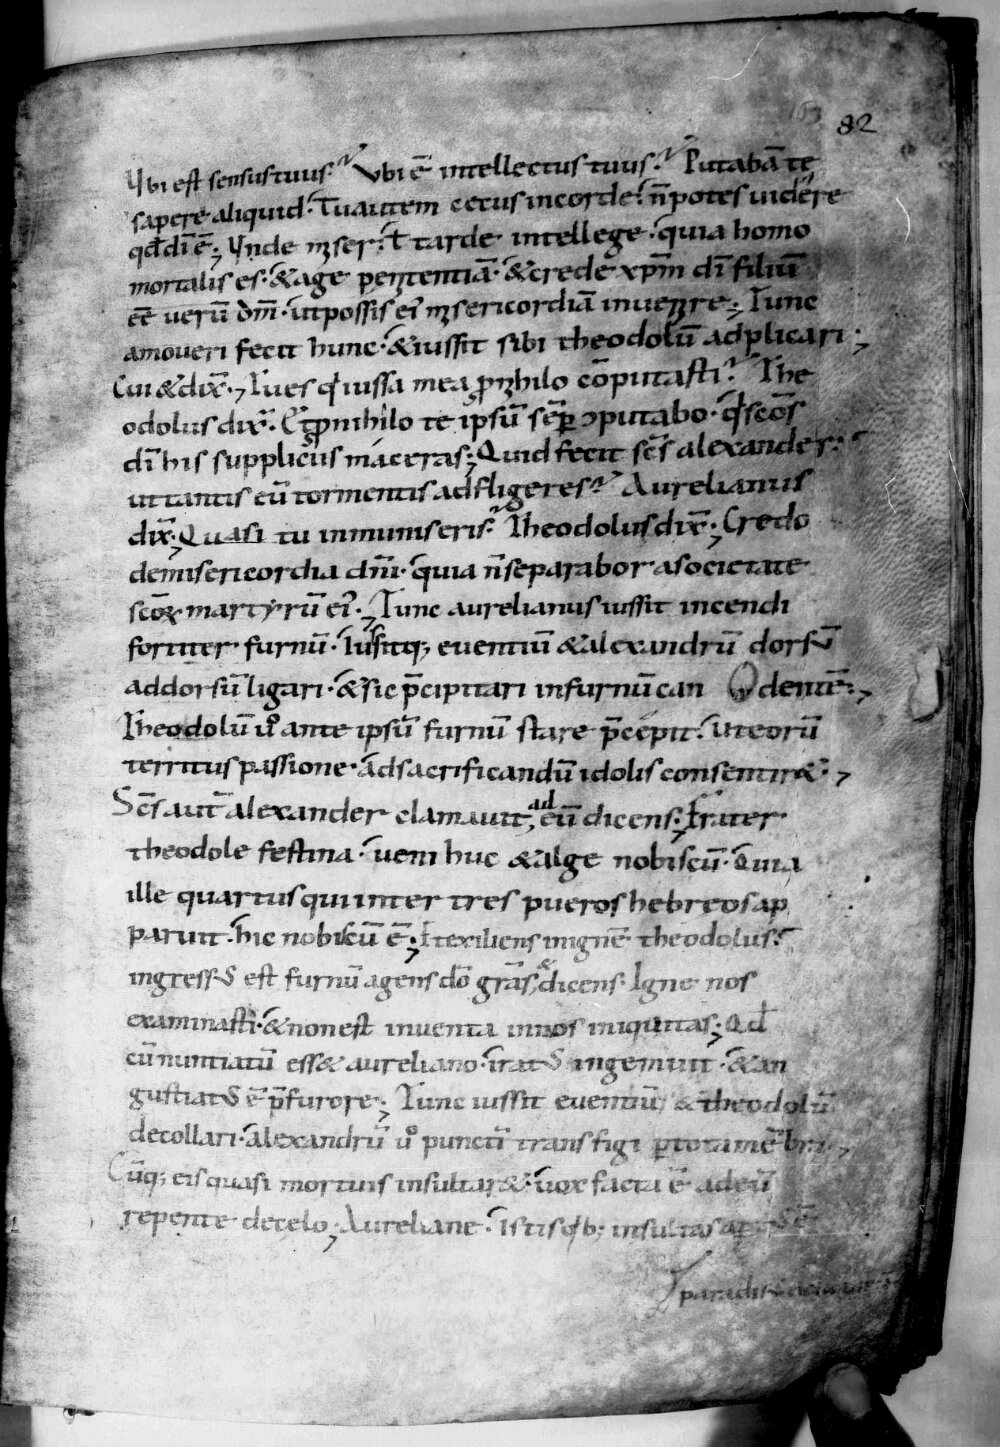 82
Vbi est sensus tuus? Vbi ē intellectus tuus? Putabā te
sapere aliquid. Tu autem cecus in corde. n̄ potes uidere
qđ dī ē; Vnde miser. t̄ tarde intellege. quia homo
mortalis es. & age penitentiā. & crede xp̄m dī filiū
eē uerū dm̄. ut possis ei' misericordiā inuenire; Tunc
amoueri fecit hunc. & iussit sibi theodolū adplicari;
Cui & dix̄; Tu es q̇ iussa mea ꝓ nihilo cōputasti? The
odolus dix̄. Et ꝓ nihilo te ipsū sēp ɔputabo. q̇ scōs
dī his suppliciis maceras; Quid fecit scs̄ alexander.
ut tantis eū tormentis adfligeres? Aurelianus
dix̄; Quasi tu inmunis eris? Theodolus dix̄; Credo
de misericordia dn̄i. quia n̄ separabor a societate
scōꝝ martyrū ei'; Tunc aurelianus iussit incendi
fortiter furnū. Iussitq; euentiū & alexandrū dorsū
ad dorsū ligari. & sic p̄cipitari in furnū can dentē;
Theodolū ŭo ante ipsū furnū stare p̄cepit. ut eorū
territus passione. ad sacrificandū idolis consentir&;
Scs̄ aut̄ alexander clamauit, ad eū dicens; Frater
theodole festina. ueni huc & alge nobiscū. Quia
ille quartus qui inter tres pueros hebreos ap
paruit. hic nobiscū ē; Et exiliens in ignē theodolus.
ingressus est furnū agens dō grās, & dicens. Igne nos
examinasti. & non est inuenta in nos iniquitas; Qđ
cū nuntiatū ess& aureliano. iratus ingemuit. & an
gustiatus ē p̄ furore; Tunc iussit euentiū & theodolū
decollari. alexandrū ŭo punctī transfigi ꝑ tota mēbra;
Cūq; eis quasi mortuis insultar&. uox facta ē ad eū
repente de celo; Aureliane. Istis qb; insultas apertus ē
paradisus